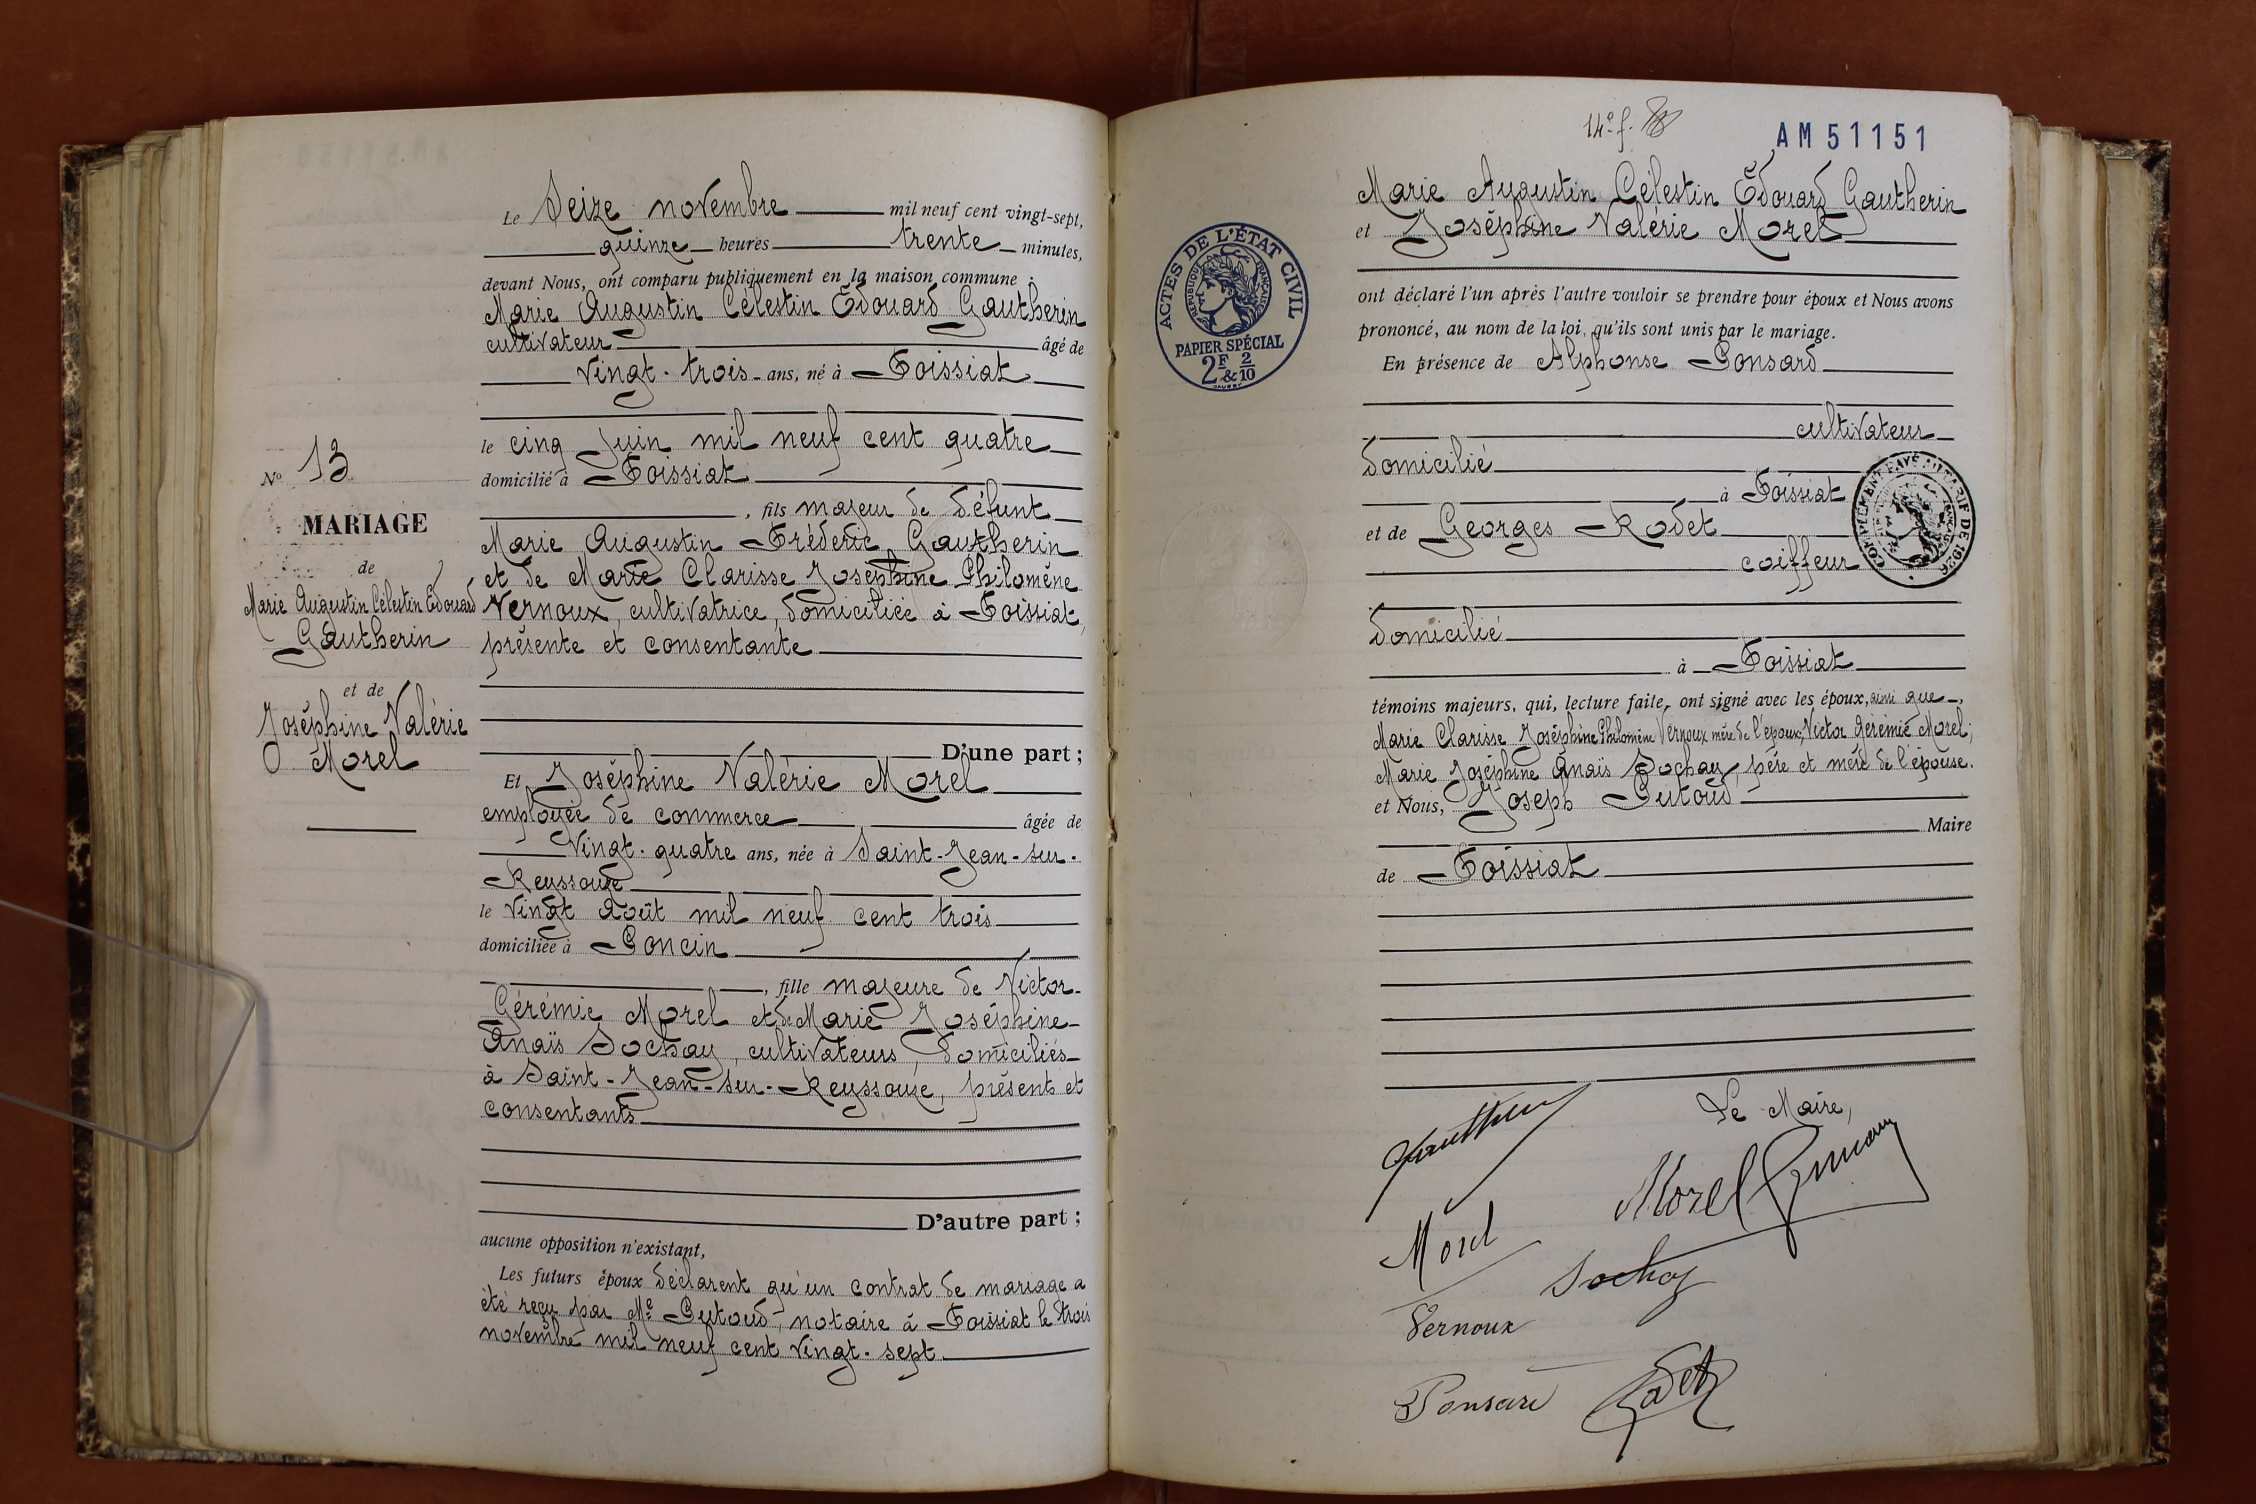 Le Seize novembre mil neuf cent vingt-sept,
quinze heures trente minutes,
devant Nous, ont comparu publiquement en la maison commune :
Marie Augustin Célestin Édouard Gautherin
cultivateur âgé de
vingt-trois ans, né à Foissiat
le cinq Juin mil neuf cent quatre
domicilié à Foissiat
, fils majeur de défunt
Marie Augustin Frédéric Gautherin
et de Marie Clarisse Joséphine Philomène
Vernoux, cultivatrice, domiciliée à Foissiat,
présente et consentante
D'une part ;
Et Joséphine Valérie Morel
employée de commerce âgée de
Vingt-quatre ans, née à Saint-Jean-sur-
Reyssouze
le vingt Août mil neuf cent trois
domiciliée à Poncin
, fille majeure de Victor-
Gérémie Morel et de Marie Joséphine-
Anaïs Sochay, cultivateurs, domiciliés
à Saint-Jean-sur-Reyssouze, présents et
consentants
D'autre part ;
aucune opposition n'existant,
Les futurs époux déclarent qu'un contrat de mariage a
été reçu par Me Putoud, notaire à Foissiat le trois
novembre mil neuf cent vingt-sept
No 13
MARIAGE
de
Marie Augustin Célestin Édouard
Gautherin
et de
Joséphine Valérie
Morel
14e f.
AM 51151
Marie Augustin Célestin Édouard Gautherin
et Joséphine Valérie Morel
ont déclaré l'un après l'autre vouloir se prendre pour époux et Nous avons
prononcé, au nom de la loi, qu'ils sont unis par le mariage.
En présence de Alphonse Ponsard
cultivateur
domicilié
à Foissiat
et de Georges Rodet
coiffeur
domicilié
à Foissiat
témoins majeurs, qui, lecture faite, ont signé avec les époux, ainsi que
Marie Clarisse Joséphine Philomène Vernoux mère de l'époux, Victor Gérémie Morel,
Marie Joséphine Anaïs Sochay, père et mère de l'épouse.
et Nous, Joseph Putoud
Maire
de Foissiat
ACTES DE L'ÉTAT CIVIL
RÉPUBLIQUE FRANÇAISE
PAPIER SPÉCIAL
2F & 2/10
COMPLÉMENT PAYÉ AU TARIF DE 1926
Le Maire,
Gautherin
Morel
Morel
Sochay
Vernoux
Ponsard
Rodet